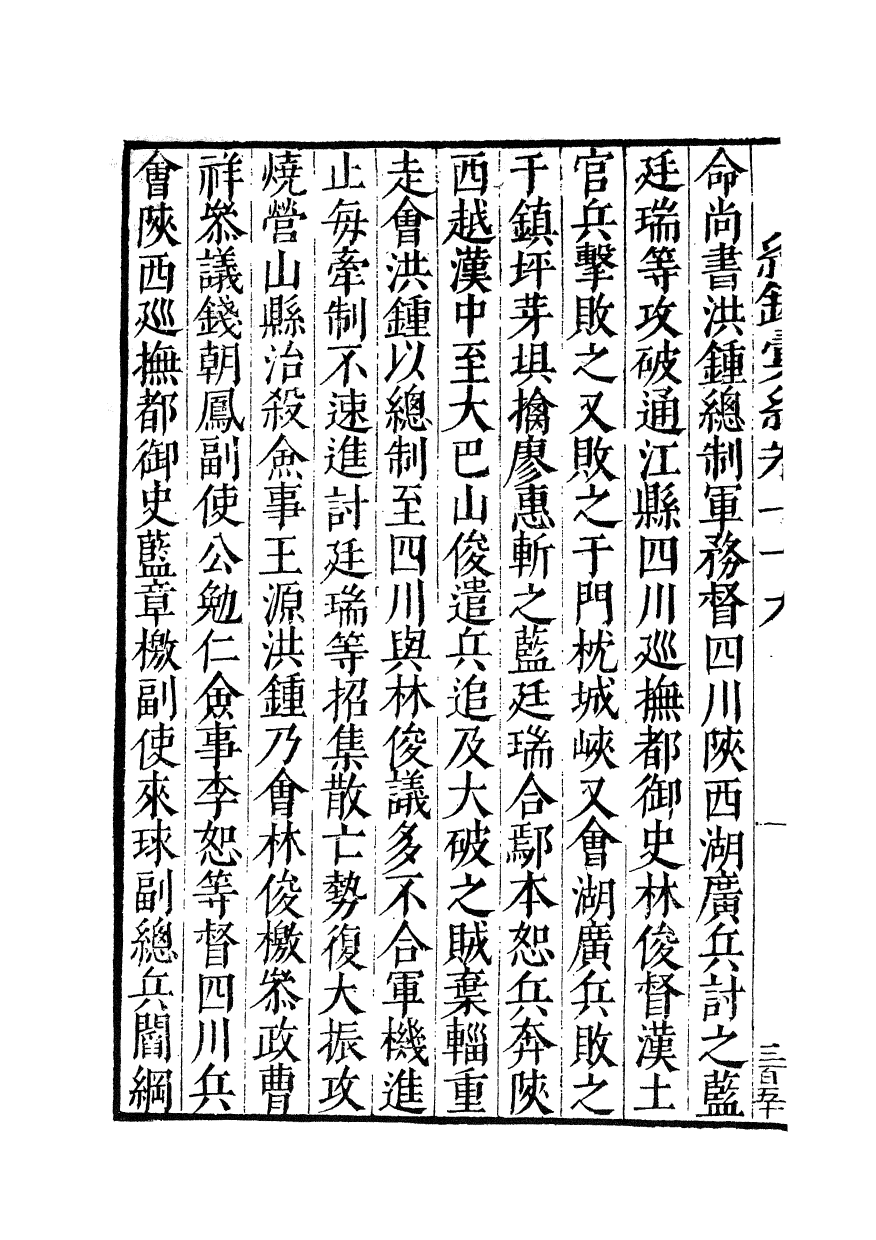 命尚書洪鍾總制軍務督四川陝西湖廣兵討之藍
廷瑞等攻破通江縣四川廵撫都御史林俊督漢土
官兵擊敗之又敗之于門枕城峽又會湖廣兵敗之
于鎮坪芽埧擒廖惠斬之藍廷瑞合鄢本恕兵奔陝
西越漢中至大巴山俊遣兵追及大破之賊棄輜重
走會洪鍾以總制至四川與林俊議多不合軍機進
止每牽制不速進討廷瑞等招集散亡勢復大振攻
燒營山縣治殺僉事王源洪鍾乃會林俊檄叅政曹
祥叅議錢朝鳳副使公勉仁僉事李恕等督四川兵
會陝西廵撫都御史藍章檄副使來球副總兵閻綱
三百五十